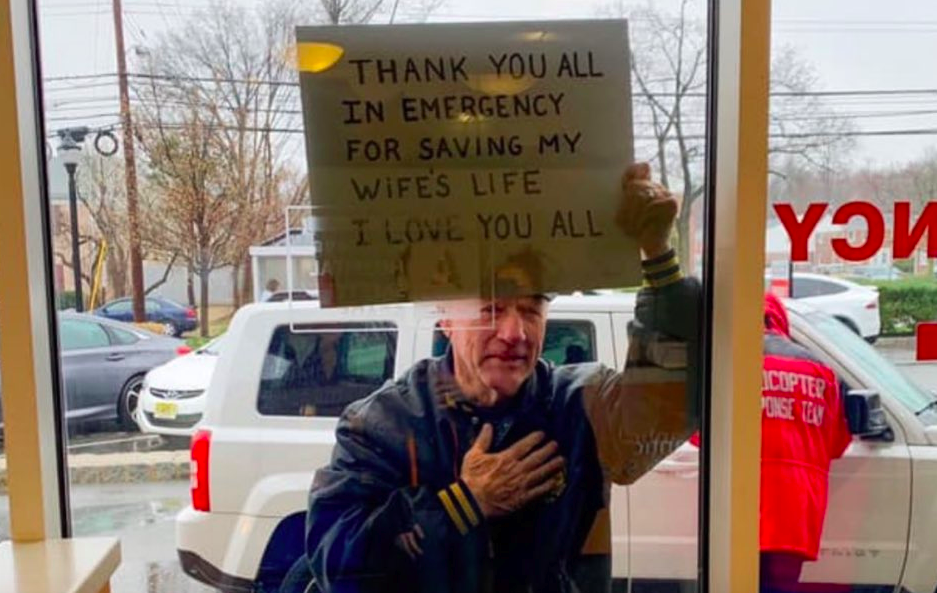 THANK YOU ALL
IN EMERGENCY
FOR SAVING MY
WIFE'S LIFE
I LOVE YOU ALL
NCY